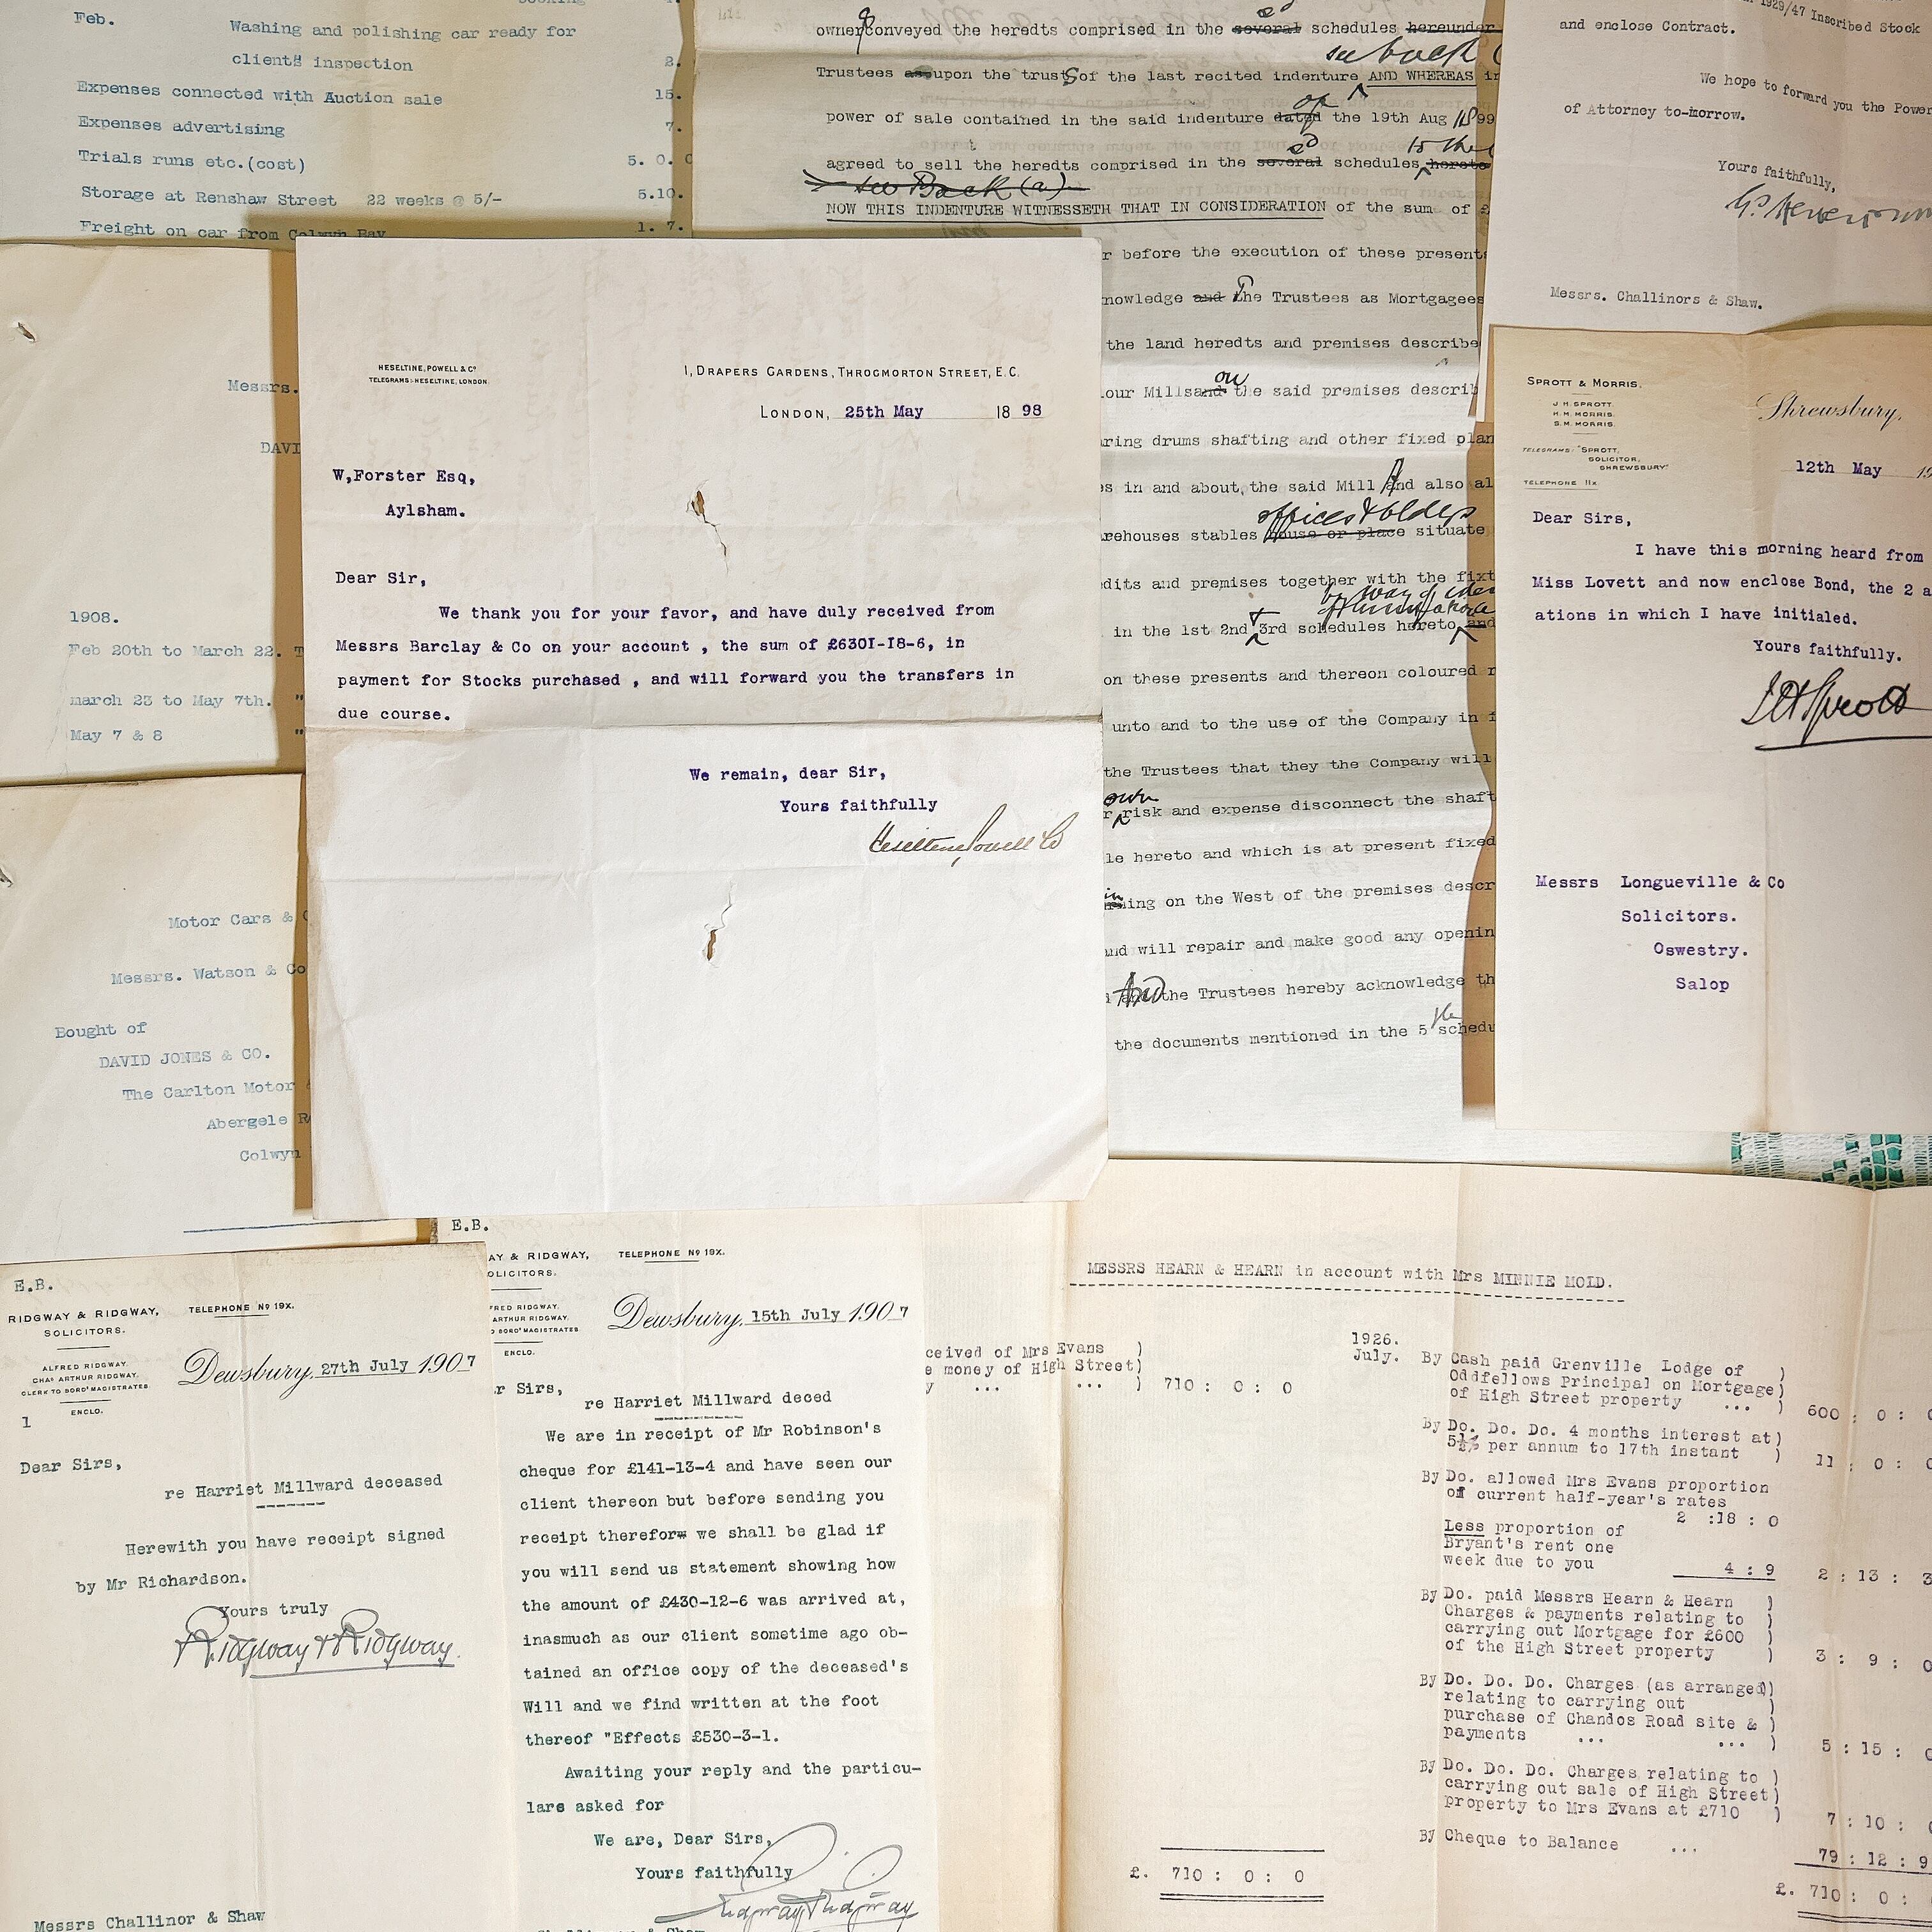 Feb.
Washing and polishing car ready for
clients inspection 2.
Expenses connected with Auction sale 15.
Expenses advertising 7.
Trials runs etc.(cost) 5. 0. 0
Storage at Renshaw Street 22 weeks @ 5/- 5.10.
Freight on car from Colwyn Bay 1. 7.
owner conveyed the heredts comprised in the several schedules hereunder
see back
Trustees as upon the trusts of the last recited indenture AND WHEREAS in
of
power of sale contained in the said indenture dated the 19th Aug 1899
to the
agreed to sell the heredts comprised in the several schedules hereto
see Back (a)
NOW THIS INDENTURE WITNESSETH THAT IN CONSIDERATION of the sum of £
r before the execution of these presents
nowledge and The Trustees as Mortgagees
the land heredts and premises describe
on
lour Mills and the said premises describ
aring drums shafting and other fixed plan
es in and about the said Mill And also al
offices & bldgs
arehouses stables house or place situate
edits and premises together with the fixt
by way of
in the 1st 2nd & 3rd schedules hereto and
on these presents and thereon coloured r
unto and to the use of the Company in f
the Trustees that they the Company will
own
r risk and expense disconnect the shaft
le hereto and which is at present fixed
ing on the West of the premises descr
and will repair and make good any openin
And the Trustees hereby acknowledge th
the documents mentioned in the 5th schedu
1929/47 Inscribed Stock
and enclose Contract.
We hope to forward you the Power
of Attorney to-morrow.
Yours faithfully,
Messrs. Challinors & Shaw.
Messrs.
DAVI
1908.
Feb 20th to March 22. T
march 23 to May 7th. "
May 7 & 8 "
HESELTINE, POWELL & Co
TELEGRAMS: HESELTINE, LONDON.
1, DRAPERS GARDENS, THROGMORTON STREET, E.C.
LONDON, 25th May 1898
W,Forster Esq,
Aylsham.
Dear Sir,
We thank you for your favor, and have duly received from
Messrs Barclay & Co on your account , the sum of £6301-18-6, in
payment for Stocks purchased , and will forward you the transfers in
due course.
We remain, dear Sir,
Yours faithfully
Heseltine Powell & Co
SPROTT & MORRIS.
J. H. SPROTT.
H. M. MORRIS.
S. M. MORRIS.
TELEGRAMS: "SPROTT,
SOLICITOR,
SHREWSBURY"
TELEPHONE 11x
Shrewsbury,
12th May 19
Dear Sirs,
I have this morning heard from
Miss Lovett and now enclose Bond, the 2 a
ations in which I have initialed.
Yours faithfully.
J H Sprott
Messrs Longueville & Co
Solicitors.
Oswestry.
Salop
Motor Cars & C
Messrs. Watson & Co
Bought of
DAVID JONES & CO.
The Carlton Motor
Abergele R
Colwyn
E.B.
RIDGWAY & RIDGWAY,
SOLICITORS.
TELEPHONE No 19X.
ALFRED RIDGWAY.
CHAS ARTHUR RIDGWAY.
CLERK TO BORO' MAGISTRATES.
ENCLO.
1
Dewsbury, 27th July 1907
Dear Sirs,
re Harriet Millward deceased
Herewith you have receipt signed
by Mr Richardson.
Yours truly
Ridgway & Ridgway.
Messrs Challinor & Shaw
E.B.
AY & RIDGWAY,
OLICITORS.
TELEPHONE No 19X.
FRED RIDGWAY.
ARTHUR RIDGWAY.
O BORO' MAGISTRATES
ENCLO.
Dewsbury, 15th July 1907
r Sirs,
re Harriet Millward deced
We are in receipt of Mr Robinson's
cheque for £141-13-4 and have seen our
client thereon but before sending you
receipt therefore we shall be glad if
you will send us statement showing how
the amount of £430-12-6 was arrived at,
inasmuch as our client sometime ago ob-
tained an office copy of the deceased's
Will and we find written at the foot
thereof "Effects £530-3-1.
Awaiting your reply and the particu-
lars asked for
We are, Dear Sirs,
Yours faithfully
Ridgway & Ridgway
MESSRS HEARN & HEARN in account with Mrs MINNIE MOLD.
ceived of Mrs Evans )
e money of High Street)
y ... ... ) 710 : 0 : 0
£. 710 : 0 : 0
1926.
July. By Cash paid Grenville Lodge of )
Oddfellows Principal on Mortgage)
of High Street property ... ) 600 : 0 : 0
By Do. Do. Do. 4 months interest at)
5½% per annum to 17th instant ) 11 : 0 : 0
By Do. allowed Mrs Evans proportion
of current half-year's rates
2 :18 : 0
Less proportion of
Bryant's rent one
week due to you 4 : 9 2 : 13 : 3
By Do. paid Messrs Hearn & Hearn )
Charges & payments relating to )
carrying out Mortgage for £600 )
of the High Street property ) 3 : 9 : 0
By Do. Do. Do. Charges (as arranged))
relating to carrying out )
purchase of Chandos Road site & )
payments ... ... ) 5 : 15 : 0
By Do. Do. Do. Charges relating to )
carrying out sale of High Street)
property to Mrs Evans at £710 ) 7 : 10 : 0
By Cheque to Balance ... 79 : 12 : 9
£. 710 : 0 :